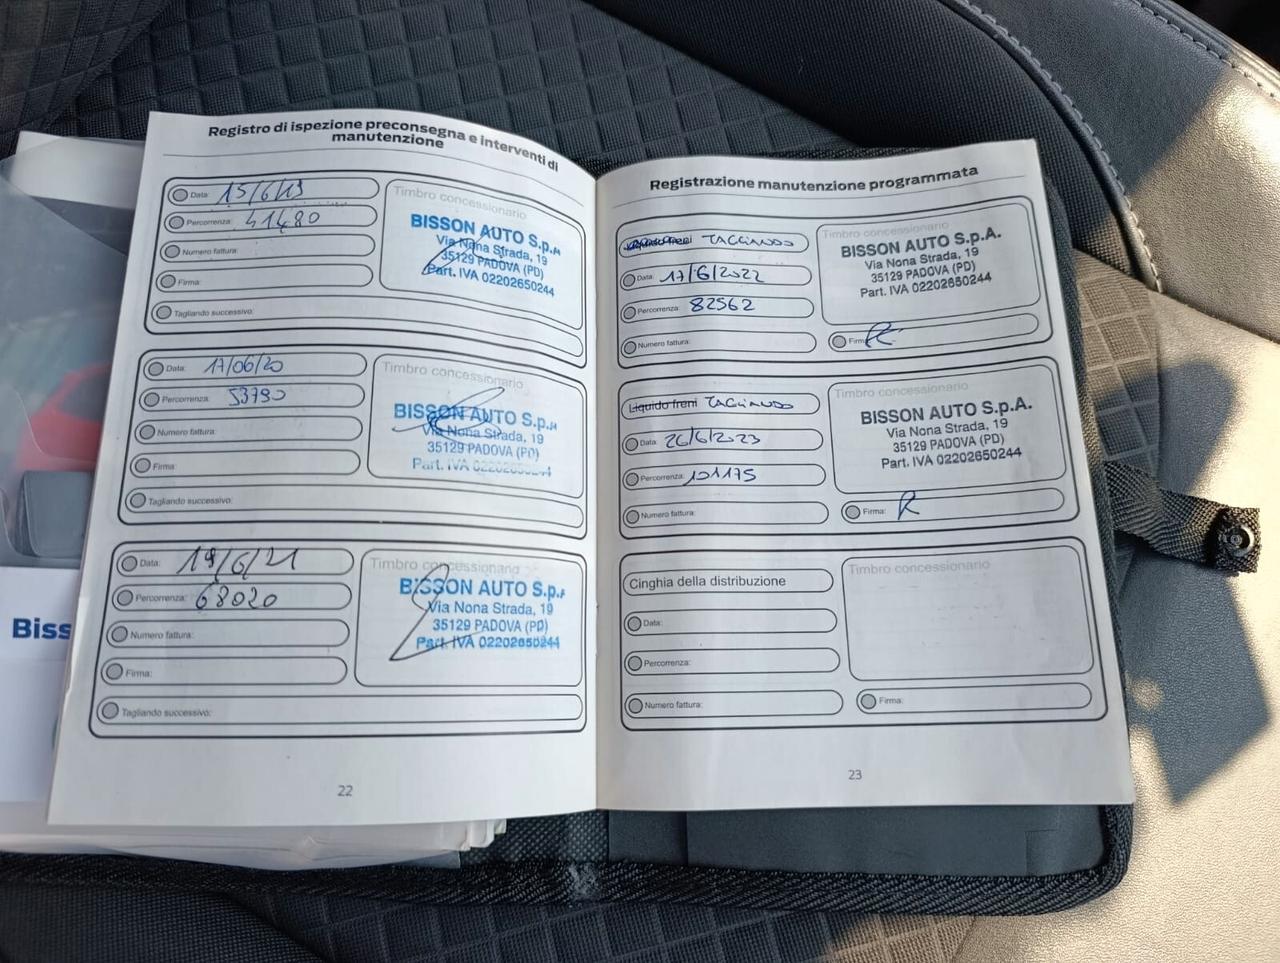 Registro di ispezione preconsegna e interventi di
manutenzione
Data: 15/6/19
Percorrenza: 41480
Numero fattura:
Firma:
Tagliando successivo:
Timbro concessionario
BISSON AUTO S.p.A
Via Nona Strada, 19
35129 PADOVA (PD)
Part. IVA 02202650244
Data: 17/06/20
Percorrenza: 53790
Numero fattura:
Firma:
Tagliando successivo:
Timbro concessionario
BISSON AUTO S.p.A
Via Nona Strada, 19
35129 PADOVA (PD)
Part. IVA 02202650244
Data: 19/6/21
Percorrenza: 68020
Numero fattura:
Firma:
Tagliando successivo:
Timbro concessionario
BISSON AUTO S.p.A
Via Nona Strada, 19
35129 PADOVA (PD)
Part. IVA 02202650244
22
Biss
Registrazione manutenzione programmata
Liquido freni TAGLIANDO
Data: 17/6/2022
Percorrenza: 82562
Numero fattura:
Timbro concessionario
BISSON AUTO S.p.A.
Via Nona Strada, 19
35129 PADOVA (PD)
Part. IVA 02202650244
Firma:
Liquido freni TAGLIANDO
Data: 26/6/2023
Percorrenza: 101175
Numero fattura:
Timbro concessionario
BISSON AUTO S.p.A.
Via Nona Strada, 19
35129 PADOVA (PD)
Part. IVA 02202650244
Firma:
Cinghia della distribuzione
Data:
Percorrenza:
Numero fattura:
Timbro concessionario
Firma:
23